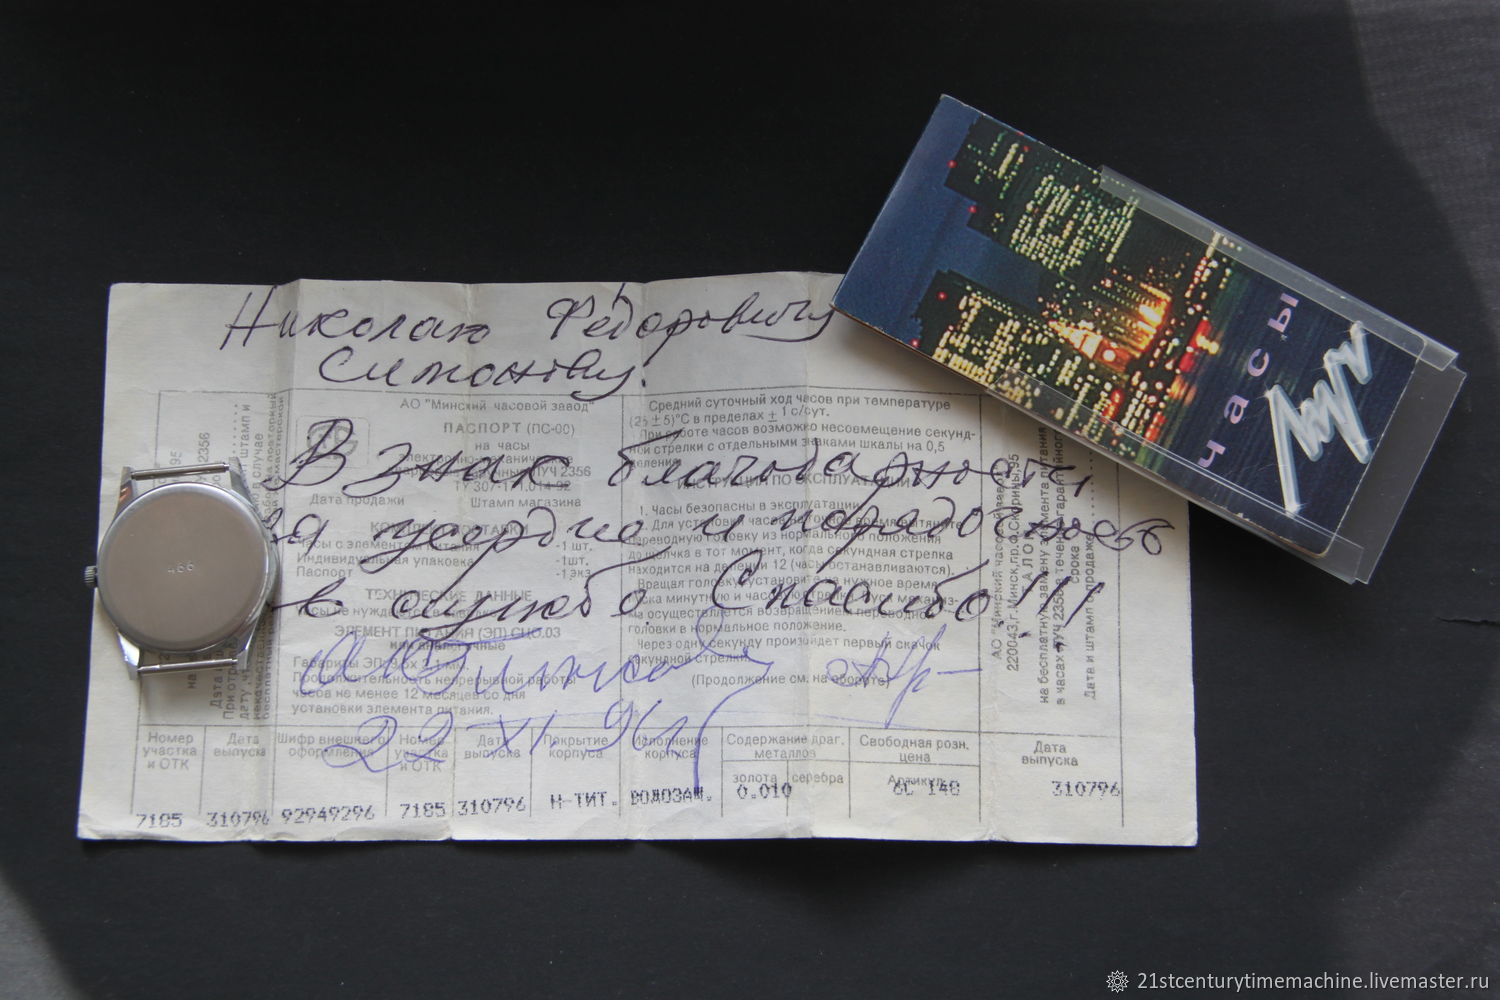 Николаю Фёдоровичу
Симонову.
В знак благодарности,
за усердие и порядочность
в службе. Спасибо!!!
22-XI.96г
АО "Минский часовой завод"
ПАСПОРТ (ПС-00)
на часы
электронно-механические
ЛУЧ 2356
Дата продажи Штамп магазина
Часы с элементом питания -1 шт.
Индивидуальная упаковка -1шт.
Паспорт -1 экз.
ТЕХНИЧЕСКИЕ ДАННЫЕ
ЭЛЕМЕНТ ПИТАНИЯ (ЭП) СЦ0.03
или аналогичные
Габариты ЭП
Продолжительность непрерывной работы
часов не менее 12 месяцев со дня
установки элемента питания.
Средний суточный ход часов при температуре
(25 ± 5)°С в пределах ± 1 с/сут.
При работе часов возможно несовмещение секунд-
ной стрелки с отдельными знаками шкалы на 0,5
деления.
ИНСТРУКЦИЯ ПО ЭКСПЛУАТАЦИИ
1. Часы безопасны в эксплуатации.
2. Для установки часов на точное время вытяните
переводную головку из нормального положения
до щелчка в тот момент, когда секундная стрелка
находится на делении 12 (часы останавливаются).
Вращая головку, установите на нужное время
головки в нормальное положение.
Через одну секунду произойдет первый скачок
секундной стрелки.
(Продолжение см. на обороте)
АО "Минский часовой завод"
220043, г. Минск, пр. Ф. Скорины, 95
ТАЛОН
на бесплатную замену элемента питания
в часах ЛУЧ 2356 в течение гарантийного
срока
Дата и штамп продажи
Номер участка и ОТК
Дата выпуска
Шифр внешнего оформления
Номер участка и ОТК
Дата выпуска
Покрытие корпуса
Исполнение корпуса
Содержание драг. металлов
золота серебра
Свободная розн. цена
Артикул
Дата выпуска
7185 310796 92949296 7185 310796 Н-ТИТ. ВОДОЗАЩ. 0.010 310796
466
часы
Луч
21stcenturytimemachine.livemaster.ru